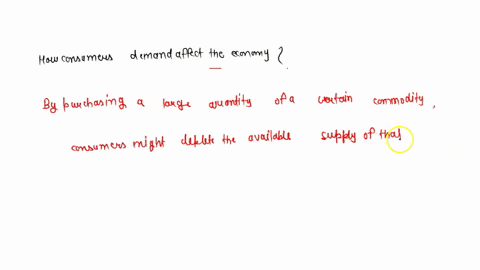 How consumers demand affect the economy?
By purchasing a large quantity of a certain commodity,
consumers might deplete the available supply of that